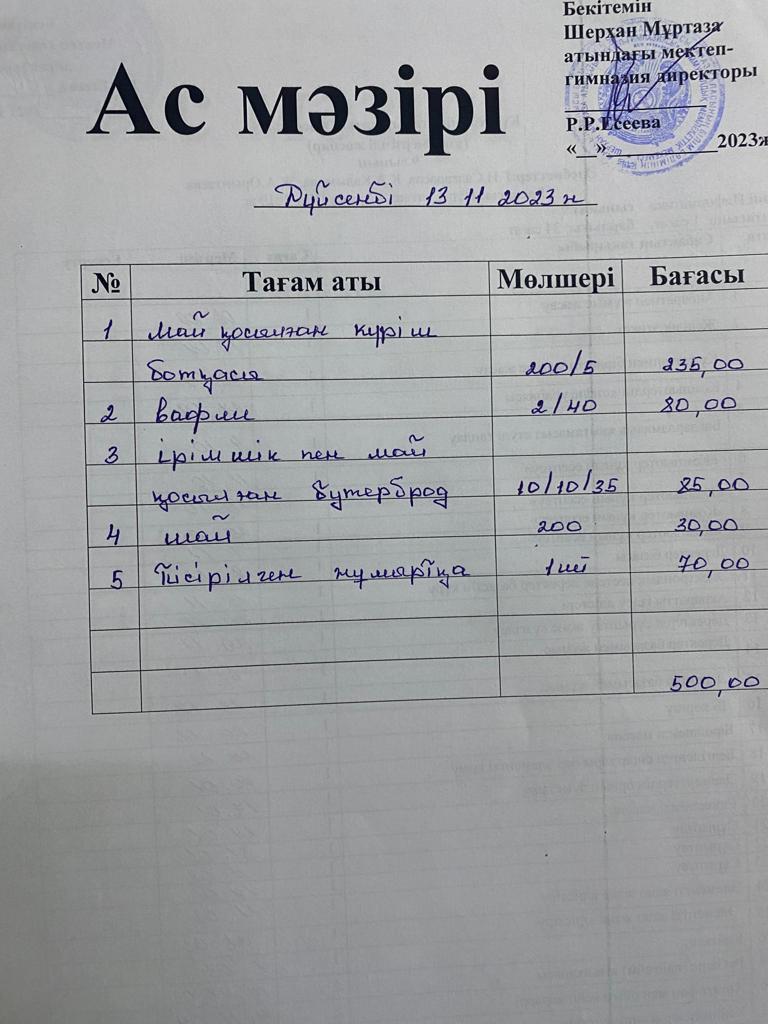 Бекітемін
Шерхан Мұртаза
атындағы мектеп-
гимназия директоры
Р.Р.Есеева
«__»____________2023ж
Ас мәзірі
Дүйсенбі 13 11 2023 ж
№ Тағам аты Мөлшері Бағасы
1 май қосылған күріш
ботқасы 200/5 235,00
2 вафли 2/40 80,00
3 ірімшік пен май
қосылған бутерброд 10/10/35 85,00
4 шай 200 30,00
5 Пісірілген жұмыртқа 1 70,00
500,00